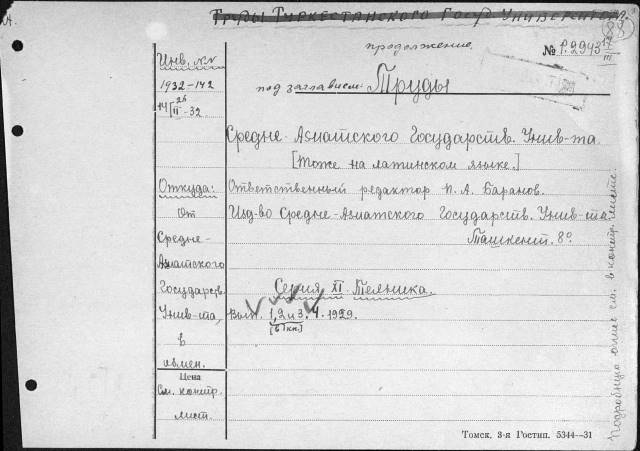 Труды Туркестанского Госуд. Университета.
продолжение.
№ Р.2943
под заглавием: Труды
Инв. №№
1932-142
Средне-Азиатского Государств. Унив-та.
[Тоже на латинском языке.]
Откуда:
От
Средне-
Азиатского
Государств.
Унив-та,
в
обмен.
Ответственный редактор П. А. Баранов.
Изд-во Средне-Азиатского Государств. Унив-та
Ташкент. 8°.
Серия XI Техника.
Вып. 1, 2 и 3. 4. 1929.
[в 1 кн.]
Цена
См. контр.
лист.
Подробную опис см. в контр. листе.
Томск, 3-я Гостип. 5344—31